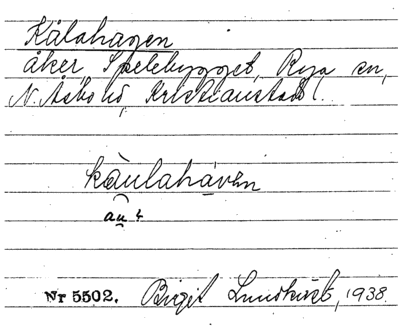 Kålahagen
åker, Spelebygget, Rya sn,
N. Åsbo hd, Kristianstads l.
kàulahávɘn
au̯ ɬ
Nr 5502. Birgit Lundkvist, 1938.